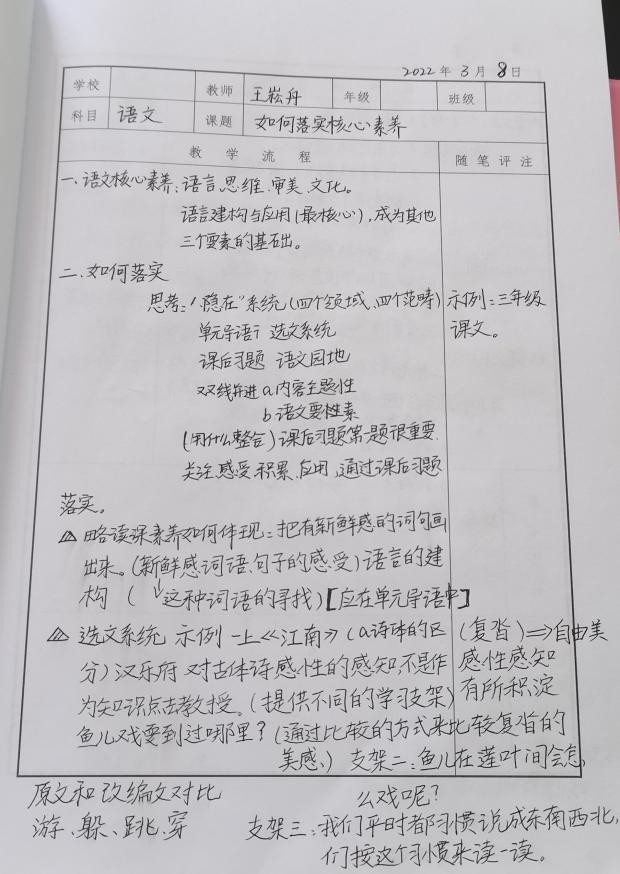 2022年 3月 8日
学校 教师 王崧丹 年级 班级
科目 语文 课题 如何落实核心素养
教学流程 随笔评注
一、语文核心素养:语言、思维、审美、文化。
语言建构与应用(最核心),成为其他
三个要素的基础。
二、如何落实
思考:"隐在"系统(四个领域、四个范畴) 示例:三年级
单元导语 选文系统 课文。
课后习题 语文园地
双线并进 a内容主题性
b语文要素
(用什么整合)课后习题第一题很重要.
关注感受、积累、应用,通过课后习题
落实。
△ 略读课素养如何体现:把有新鲜感的词句画
出来。(新鲜感词语、句子的感受)语言的建
构 (↓这种词语的寻找)[应在单元导语中]
△ 选文系统 示例 一上《江南》(a诗体的区 (复沓)⇒自由美
分)汉乐府 对古体诗感性的感知,不是作 感性感知
为知识点去教授。(提供不同的学习支架) 有所积淀
鱼儿戏耍到过哪里?(通过比较的方式来比较复沓的
美感.) 支架二:鱼儿在莲叶间会怎
原文和改编文对比 么戏呢?
游、躲、跳、穿 支架三:我们平时都习惯说成东南西北,
们按这个习惯来读一读。